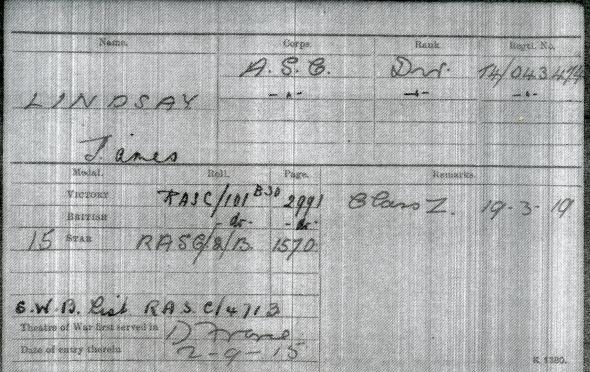 Name. Corps. Rank. Regtl. No.
A.S.C. Dvr. T4/043474
LINDSAY -"- -"- -"-
James
Medal. Roll. Page. Remarks.
VICTORY RASC/101 B30 2991 Class Z. 19-3-19
BRITISH -do- -do-
15 STAR RASC/8/B. 1570
S.W.B. List RASC/4713
Theatre of War first served in
Date of entry therein 2-9-15
K 1380.